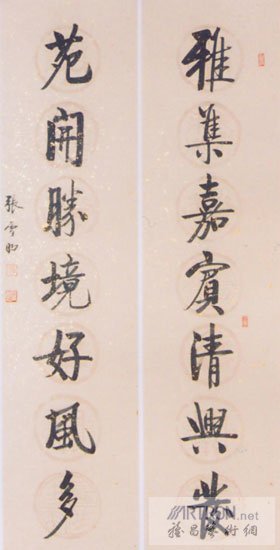 雅集嘉賓清興
苑開勝境好風多
張雪
ARTRON.net
雅昌藝術網